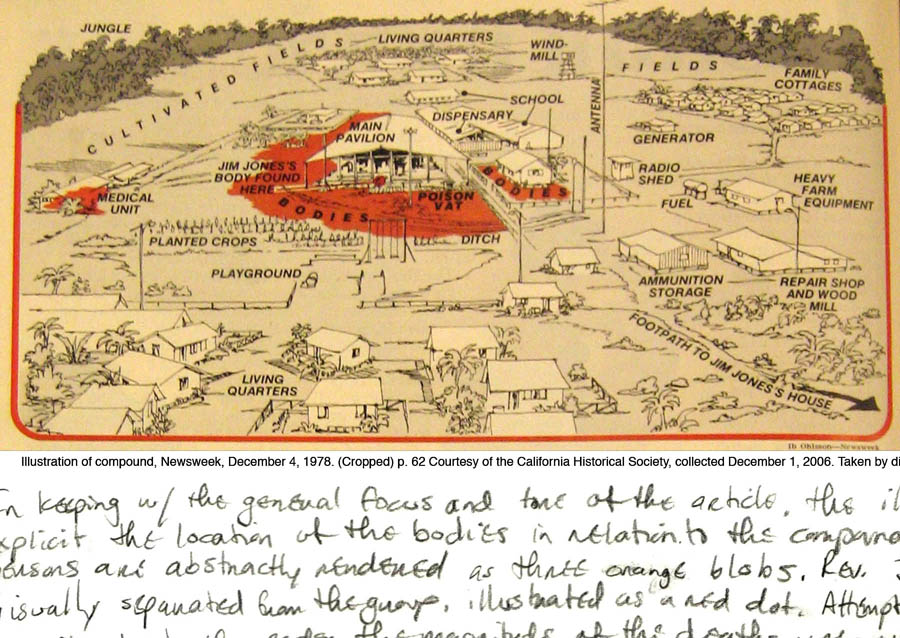 JUNGLE
LIVING QUARTERS
WIND-
MILL
CULTIVATED FIELDS
FIELDS
FAMILY
COTTAGES
SCHOOL
ANTENNA
DISPENSARY
MAIN
PAVILION
GENERATOR
JIM JONES'S
BODY FOUND
HERE
RADIO
SHED
HEAVY
FARM
EQUIPMENT
FUEL
MEDICAL
UNIT
BODIES
POISON
VAT
BODIES
PLANTED CROPS
DITCH
PLAYGROUND
AMMUNITION
STORAGE
REPAIR SHOP
AND WOOD
MILL
FOOTPATH TO JIM JONES'S HOUSE
LIVING
QUARTERS
Ib Ohlsson—Newsweek
Illustration of compound, Newsweek, December 4, 1978. (Cropped) p. 62 Courtesy of the California Historical Society, collected December 1, 2006. Taken by di
In keeping w/ the general focus and tone of the article, the il
xplicit the location of the bodies in relation to the compound
ersons are abstractly rendered as three orange blobs. Rev. J
visually separated from the group, illustrated as a red dot. Attempt
the magnitude of the death